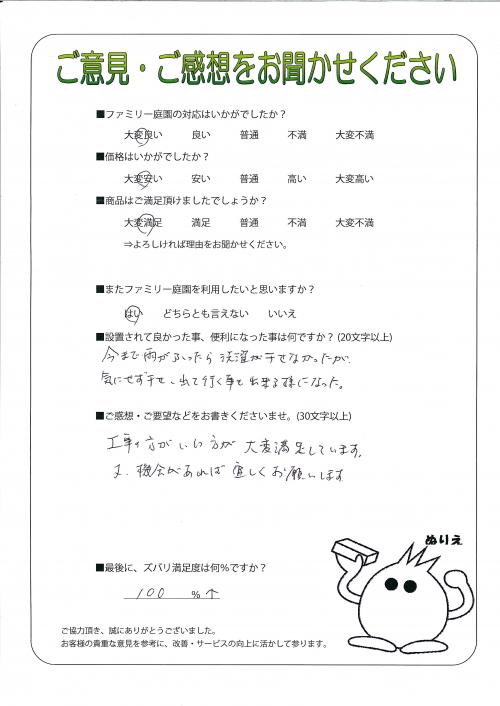 ご意見・ご感想をお聞かせください
■ファミリー庭園の対応はいかがでしたか？
大変良い 良い 普通 不満 大変不満
■価格はいかがでしたか？
大変安い 安い 普通 高い 大変高い
■商品はご満足頂けましたでしょうか？
大変満足 満足 普通 不満 大変不満
⇒よろしければ理由をお聞かせください。
■またファミリー庭園を利用したいと思いますか？
はい どちらとも言えない いいえ
■設置されて良かった事、便利になった事は何ですか？(20文字以上)
今まで雨がふったら洗濯が干せなかったが、
気にせず干せ、出て行く事も出来る様になった。
■ご感想・ご要望などをお書きくださいませ。(30文字以上)
工事の方がいい方が大変満足しています。
又、機会があれば宜しくお願いします
ぬりえ
■最後に、ズバリ満足度は何％ですか？
100 ％↑
ご協力頂き、誠にありがとうございました。
お客様の貴重な意見を参考に、改善・サービスの向上に活かして参ります。